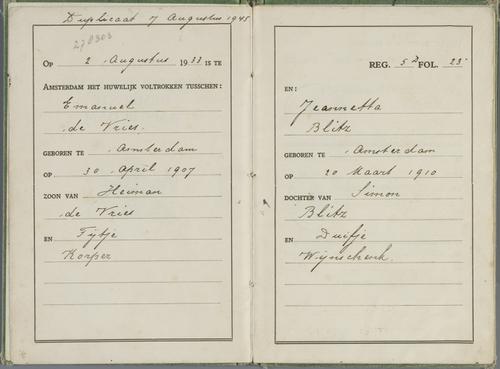 Duplicaat 7 Augustus 1945
278303
Op 2 Augustus 1933 is te
Amsterdam het huwelijk voltrokken tusschen:
Emanuel
de Vries
geboren te Amsterdam
op 30 April 1907
zoon van Heiman
de Vries
en Fijtje
Korper
Reg. 5D Fol. 23
en:
Jeannetta
Blitz
geboren te Amsterdam
op 20 Maart 1910
dochter van Simon
Blitz
en Duifje
Wijnschenk